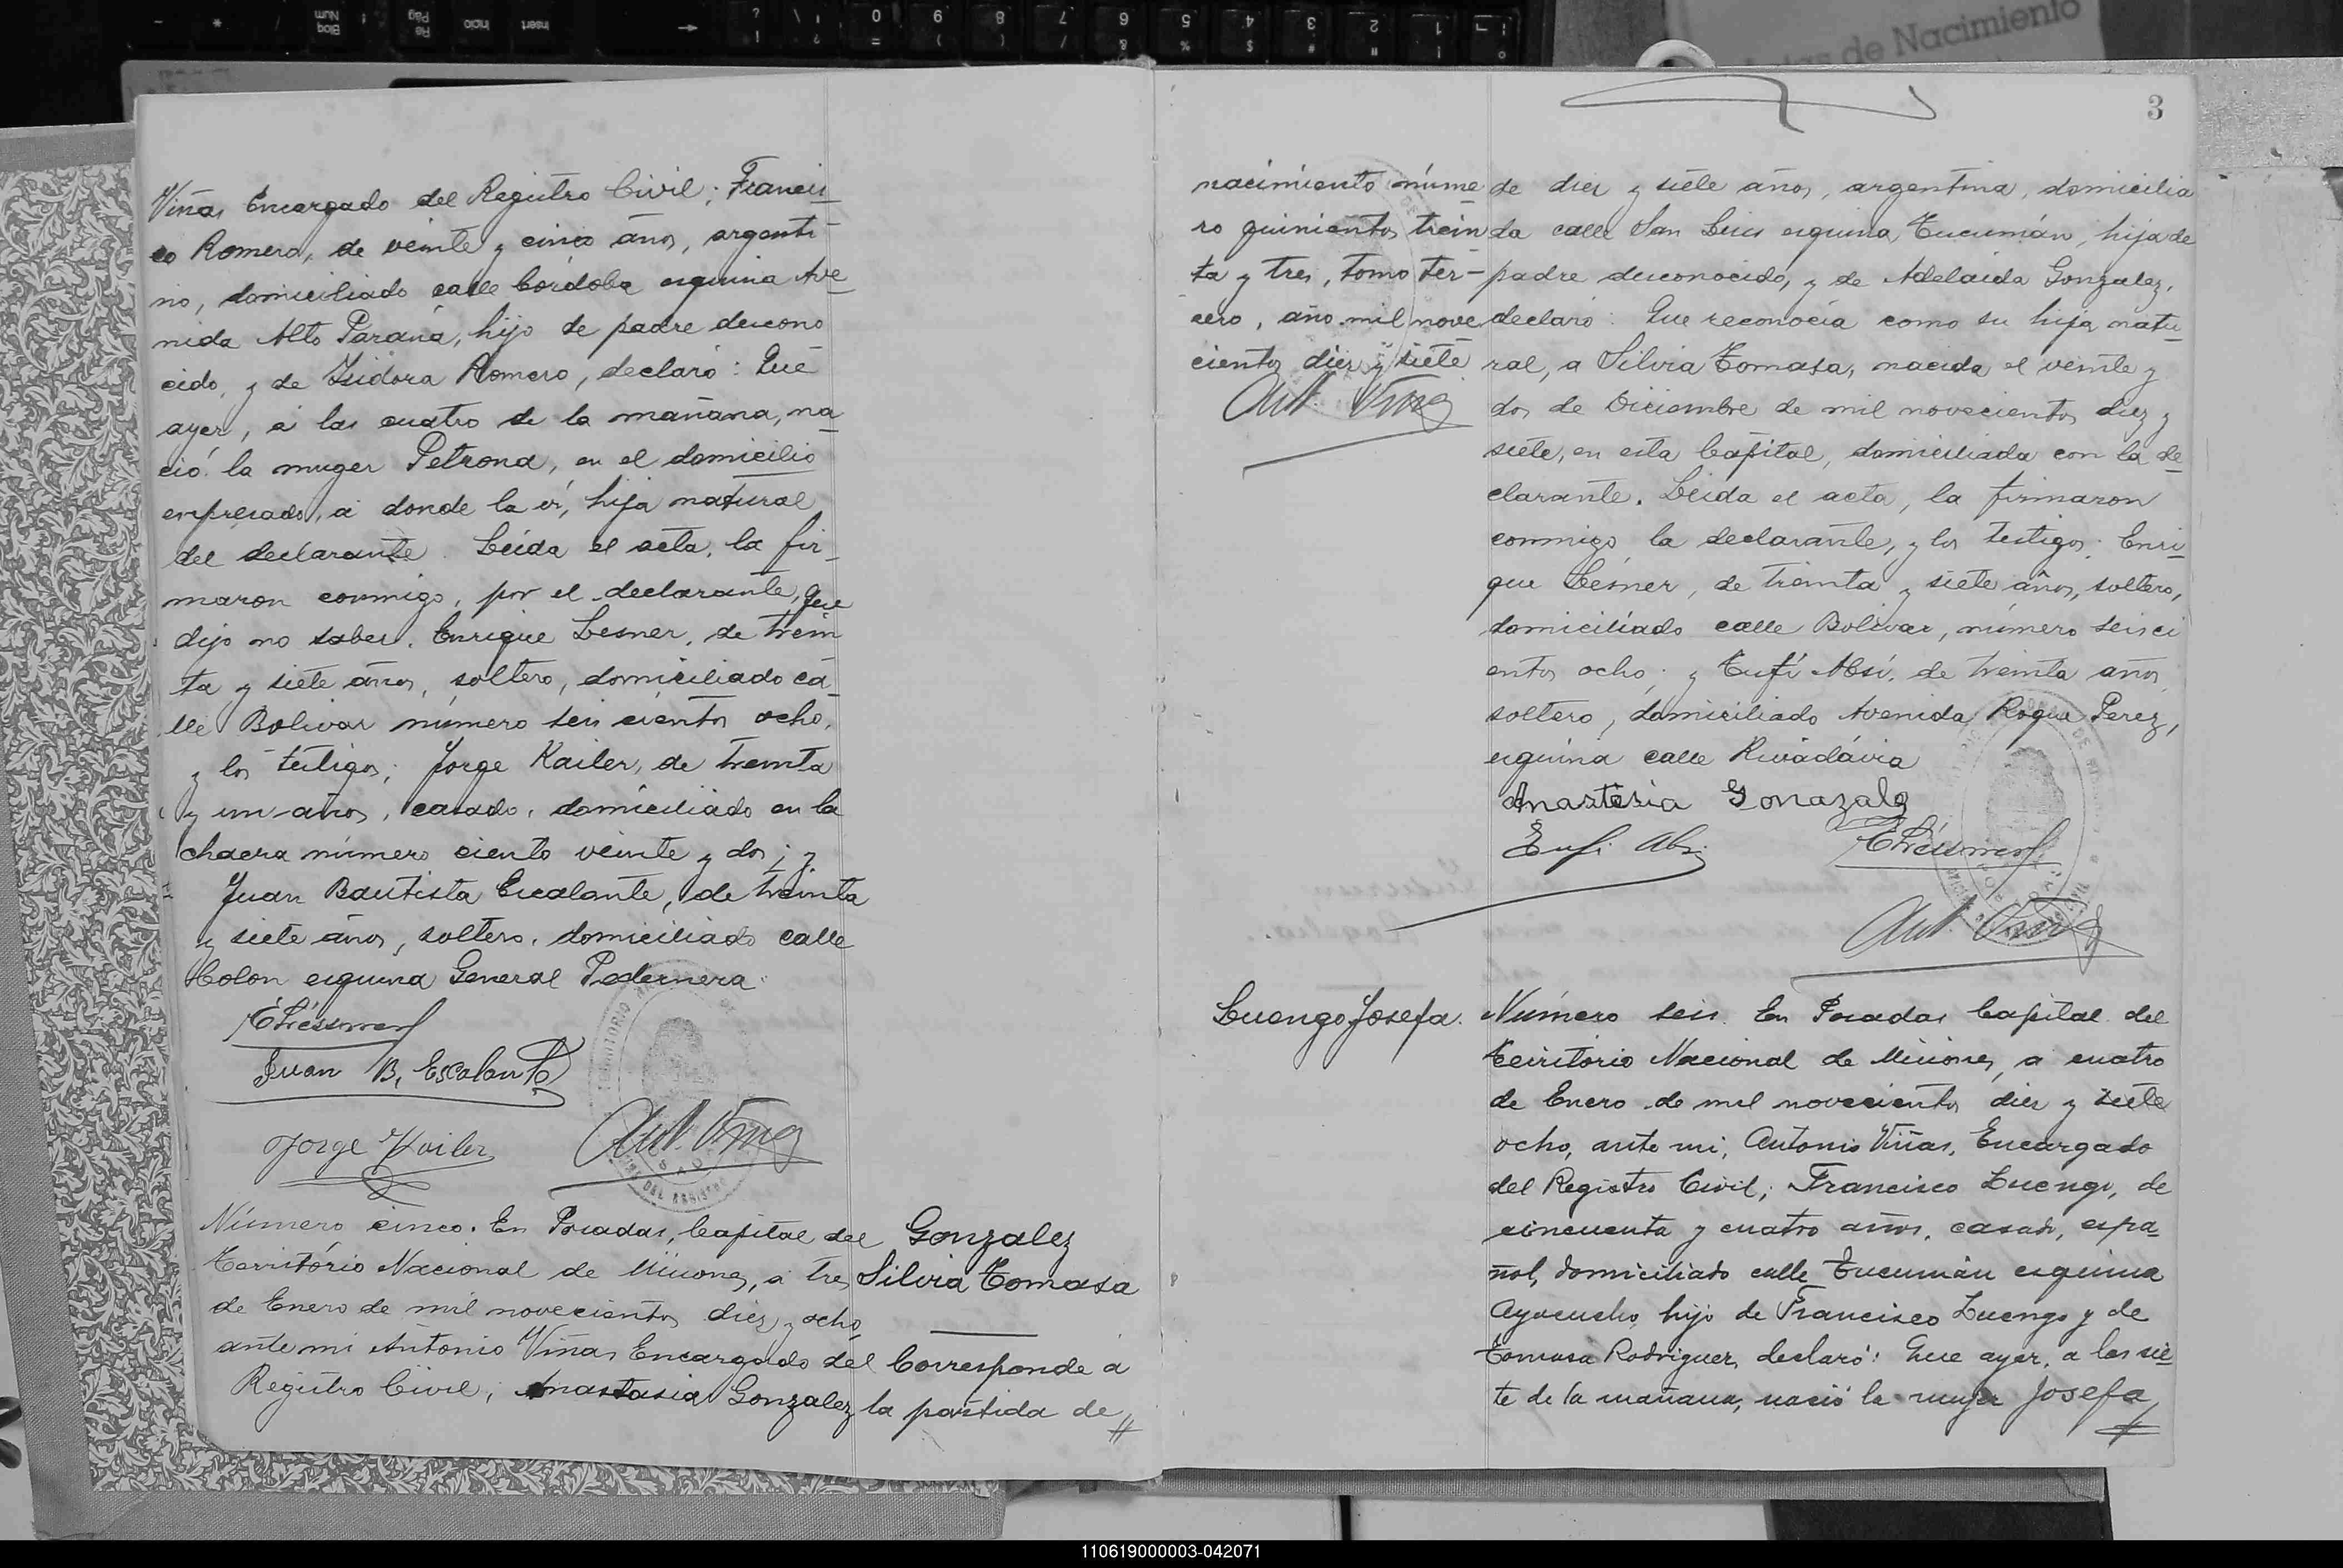 Viñas Encargado del Registro Civil; Francis
co Romero, de veinte y cinco años, argenti
no, domiciliado calle Córdoba esquina Ave
nida Alto Paraná, hijo de padre descono
cido, y de Isidora Romero, declaró: Que
ayer, a las cuatro de la mañana, na
ció la muger Petrona, en el domicilio
expresado, a donde la vi, hija natural
del declarante. Leida el acta, la fir
maron conmigo, por el declarante, que
dijo no saber. Enrique Lesner, de trein
ta y siete años, soltero, domiciliado ca
lle Bolivar número seis cientos ocho,
y los testigos; Jorge Kailer, de treinta
y un años, casado, domiciliado en la
chacra número ciento veinte y dos; y
Juan Bautista Escalante, de treinta
y siete años, soltero, domiciliado calle
Colon esquina General Pedernera.
Juan B. Escalante
Jorge Kailer
Ant. Viñas
Número cinco. En Posadas, Capital del
Territorio Nacional de Misiones, a tres
de Enero de mil novecientos diez y ocho
ante mi Antonio Viñas Encargado del
Registro Civil, Anastasia Gonzalez
Gonzalez
Silvia Tomasa
Corresponde a
la partida de
3
nacimiento núme
ro quinientos trein
ta y tres, tomo ter-
cero, año mil nove
cientos diez y siete
Ant. Viñas
de diez y siete años, argentina, domicilia
da calle San Luis esquina Tucumán, hija de
padre desconocido, y de Adelaida Gonzalez,
declaró: Que reconocía como su hija natu
ral, a Silvia Tomasa, nacida el veinte y
dos de Diciembre de mil novecientos diez y
siete, en esta Capital, domiciliada con la de
clarante. Leida el acta, la firmaron
conmigo la declarante, y los testigos: Enri
que Lesner, de treinta y siete años, soltero,
domiciliado calle Bolivar, número seisci
entos ocho; y Tufí Absi, de treinta años
soltero, domiciliado Avenida Roque Perez,
esquina calle Rivadavia
Anastasia Gonazalez
Tufi Absi
Ant. Viñas
Luengo Josefa.
Número seis. En Posadas Capital del
Territorio Nacional de Misiones, a cuatro
de Enero de mil novecientos diez y siete
ocho, ante mi, Antonio Viñas, Encargado
del Registro Civil; Francisco Luengo, de
cincuenta y cuatro años, casado, espa
ñol, domiciliado calle Tucumán esquina
Ayacucho, hijo de Francisco Luengo y de
Tomasa Rodriguez, declaró: Que ayer, a las sie
te de la mañana, nació la mujer Josefa
110619000003-042071